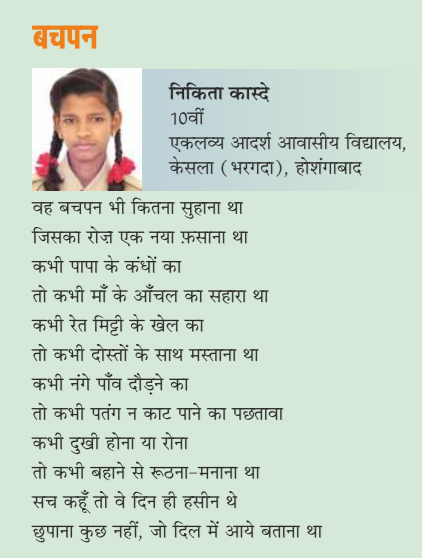 बचपन
निकिता कास्दे
10वीं
एकलव्य आदर्श आवासीय विद्यालय,
केसला (भरगदा), होशंगाबाद
वह बचपन भी कितना सुहाना था
जिसका रोज़ एक नया फ़साना था
कभी पापा के कंधों का
तो कभी माँ के आँचल का सहारा था
कभी रेत मिट्टी के खेल का
तो कभी दोस्तों के साथ मस्ताना था
कभी नंगे पाँव दौड़ने का
तो कभी पतंग न काट पाने का पछतावा
कभी दुखी होना या रोना
तो कभी बहाने से रूठना-मनाना था
सच कहूँ तो वे दिन ही हसीन थे
छुपाना कुछ नहीं, जो दिल में आये बताना था